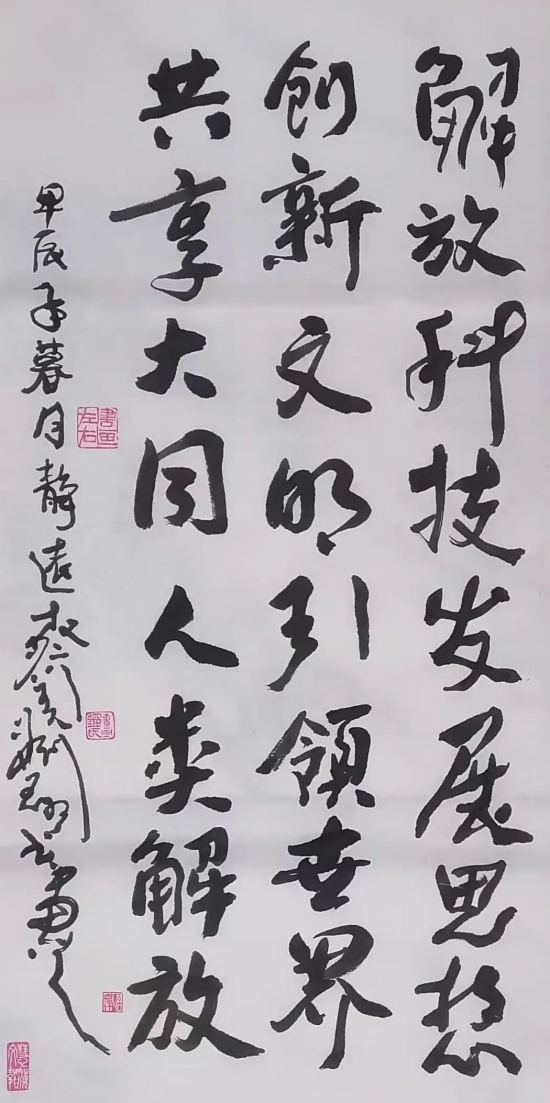 解放科技发展思想
创新文明引领世界
共享大同人类解放
甲辰年暮月静远
書画左右